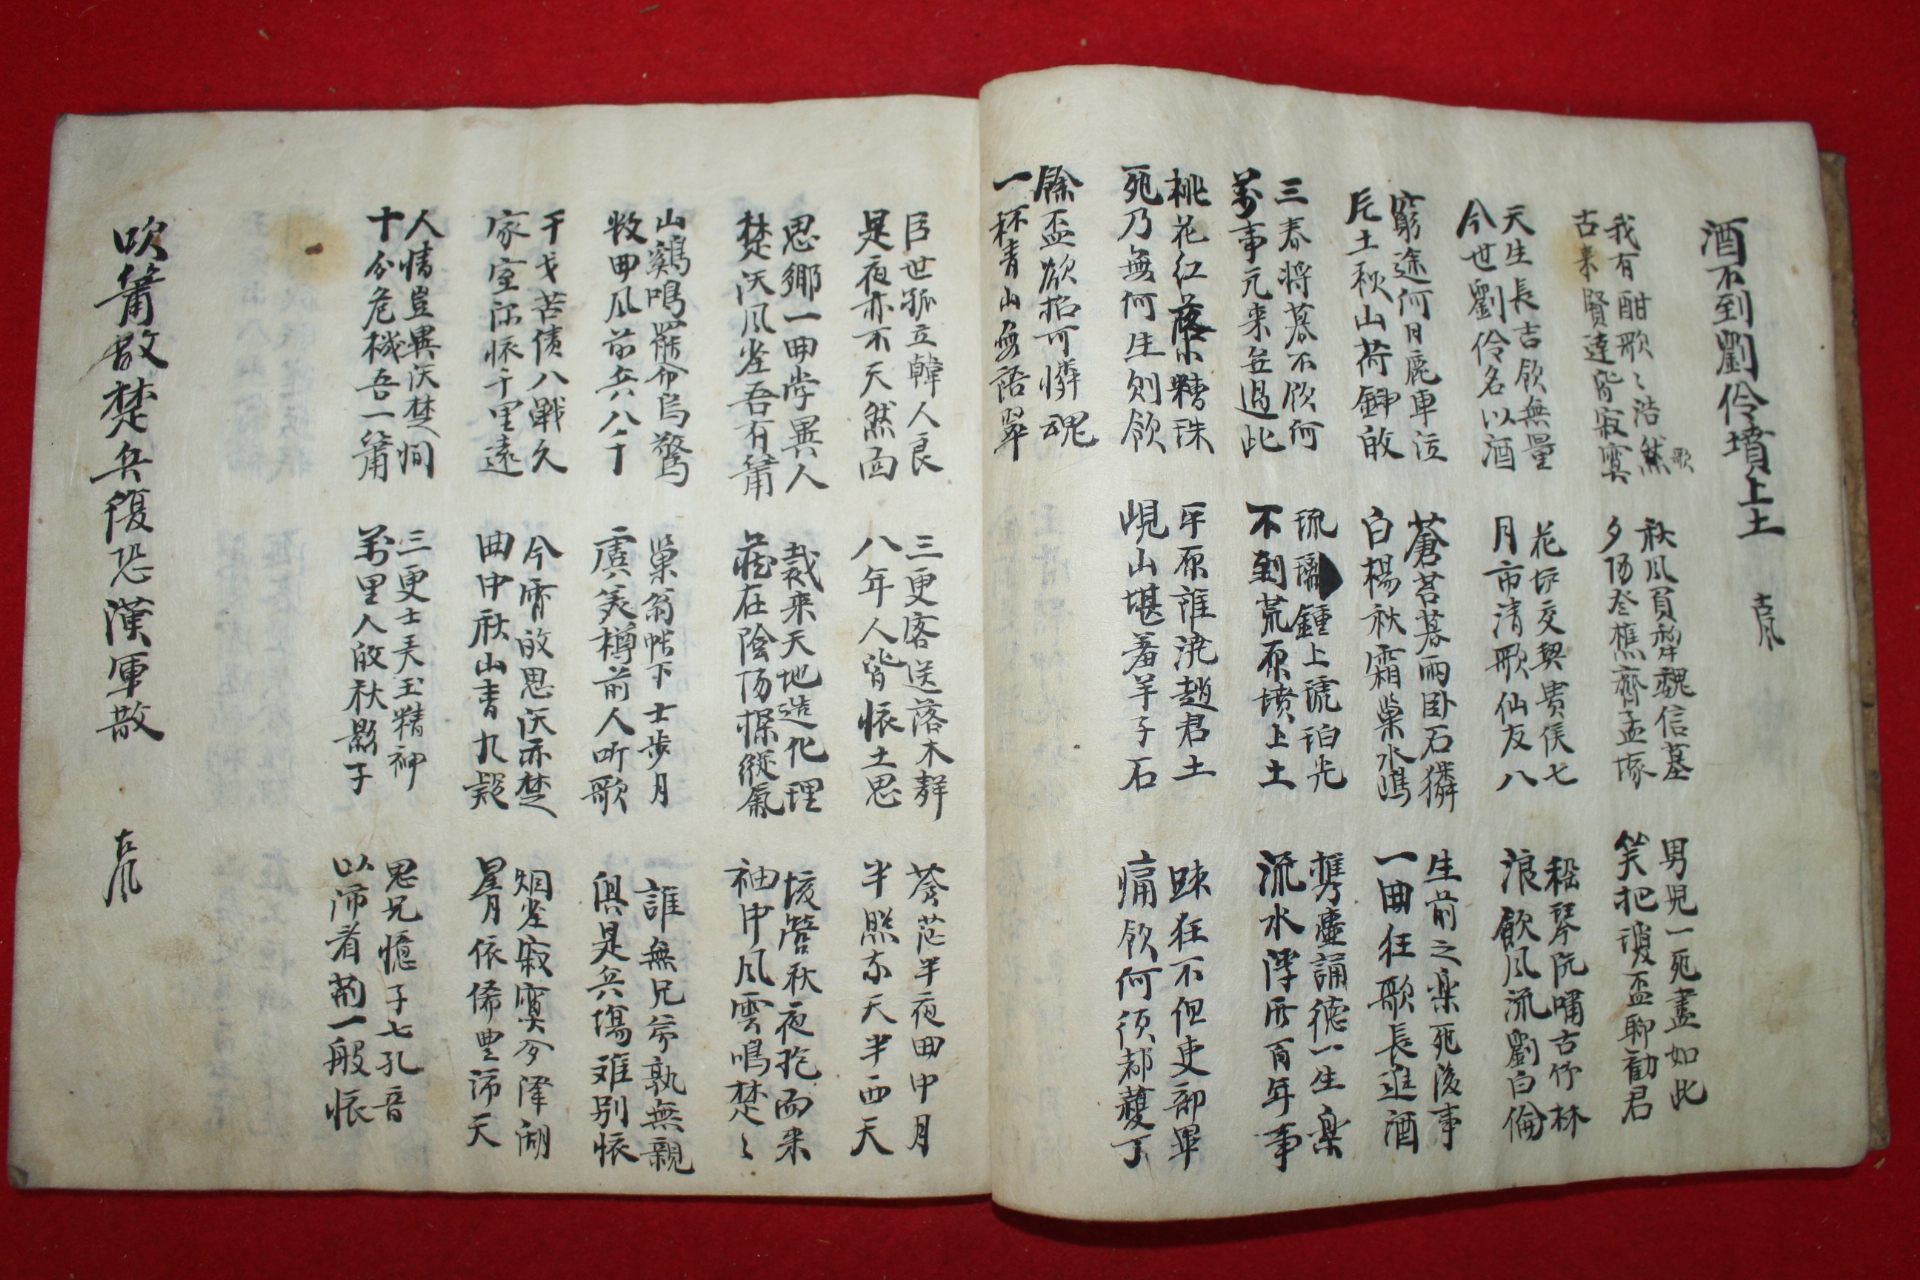 酒不到劉伶墳上土 古風
我有酣歌ヽ浩然歌
古來賢達皆寂寞
秋風買犂魏信墓
夕陽登樵齊孟塚
男兒一死盡如此
笑把瓊盃聊勸君
天生長吉飮無量
今世劉伶名以酒
花 交契貴侯七
月市清歌仙友八
嵇琴阮嘯古竹林
浪飮風流劉白倫
窮途何日鹿車泣
片土秋山荷鍤
蒼苔暮雨臥石獜
白楊秋霜巢水
生前之樂死後事
一曲狂歌長進酒
三春將暮不飮何
萬事元來無過此
琉璃鍾上琥珀光
不到荒原墳上土
携壺誦德一生樂
流水浮 百年事
桃花紅落小糟珠
死乃無何生則飮
平原誰澆趙君土
峴山堪羞羊子石
踈狂不但吏部畢
痛飮何須都護丁
餘盃欲招可憐魂
一杯青山無語翠
臣世孤立韓人良
是夜亦不天然而
三更客送落木聲
八年人皆恨土思
蒼茫半夜曲中月
半照東天半西天
思鄕一曲 異人
楚汉風尘吾有簫
裁來天地造化理
藏在陰陽操縱氣
垓營秋夜抱而來
袖中風雲鳴楚ヽ
山鷄鳴罷 烏驚
牧曲風前兵八千
巢翁帳下士步月
虞美樽前人听歌
誰無兄弟孰無親
俱是兵塲难別恨
干戈苦債八戰久
家室 恨千里遠
今宵的思汉亦楚
曲中秋山青九疑
烟尘寂寞 澤湖
星月依俙豊沛天
人情豈異汉楚間
十分危機吾一簫
三更士美玉精神
萬里人 秋影子
思兄憶子七孔音
以沛看荊一般恨
吹簫散楚兵復恐漢軍散 古風